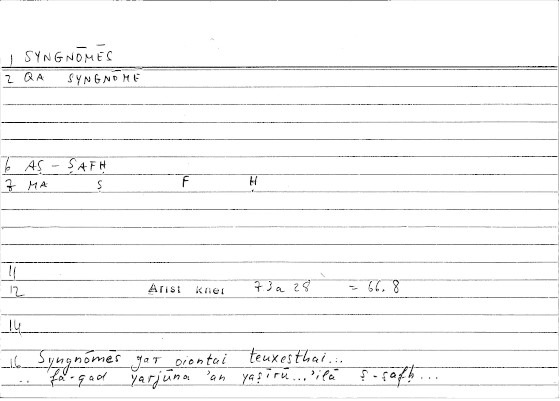 1 SYNGNŌMĒS
2 QA SYNGNŌMĒ
6 AṢ-ṢAFḤ
7 MA Ṣ F Ḥ
11
12 Arist Rhet 73a28 = 66.8
14
16 Syngnōmēs gar oiontai teuxesthai...
.. fa-qad yarjūna 'an yaṣīrū...'ilā ṣ-ṣafḥ...